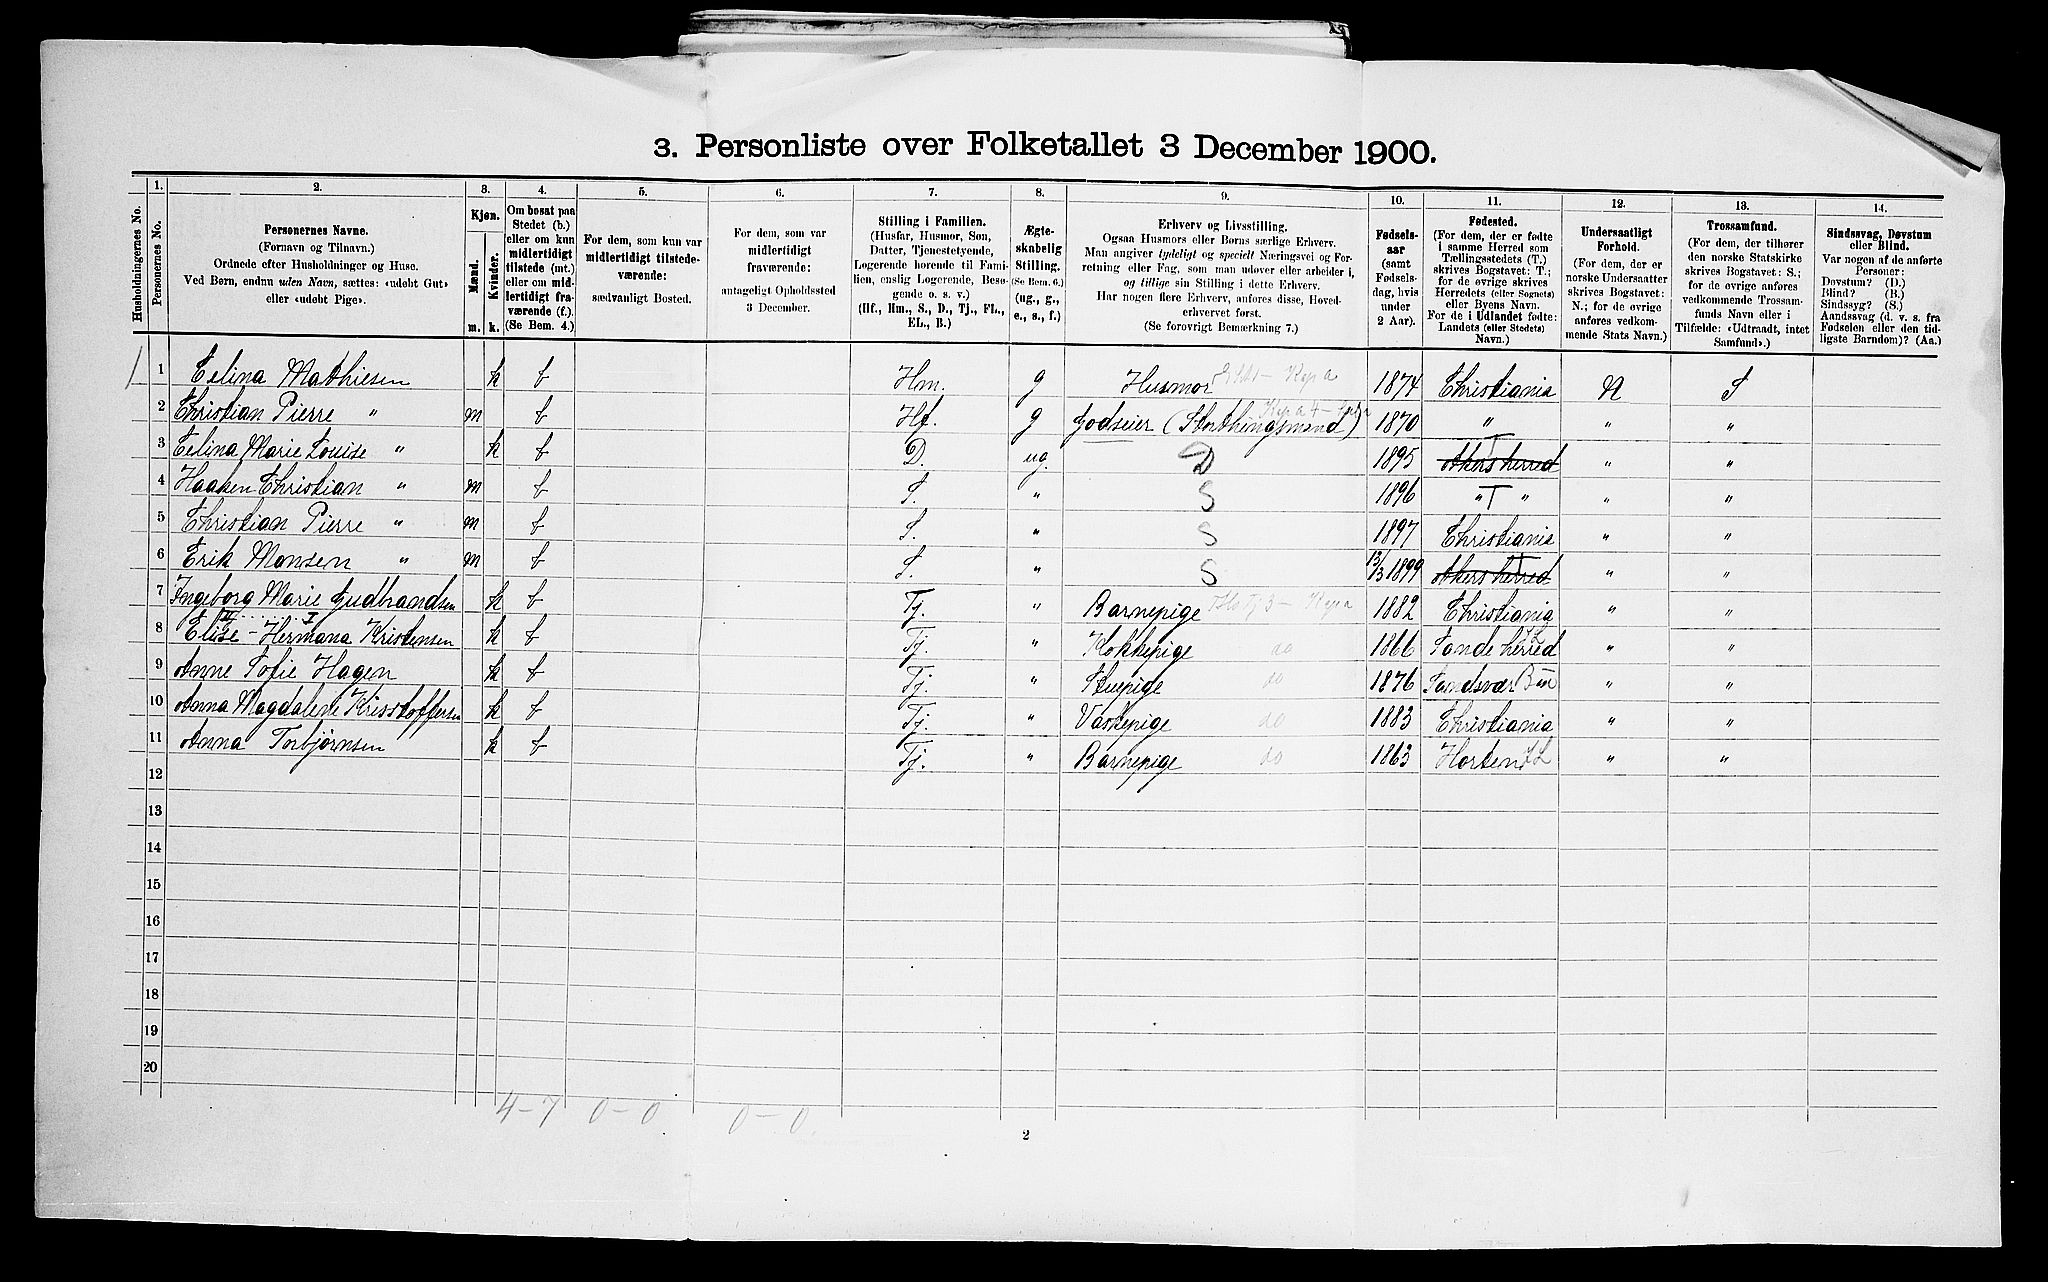 3. Personliste over Folketallet 3 December 1900.
Husholdningernes No.
1. Personernes No.
2. Personernes Navne. (Fornavn og Tilnavn.) Ordnede efter Husholdninger og Huse. Ved Børn, endnu uden Navn, sættes: «udøbt Gut» eller «udøbt Pige».
3. Kjøn. Mænd. m. Kvinder. k.
4. Om bosat paa Stedet (b.) eller om kun midlertidigt tilstede (mt.) eller om midlertidigt fraværende (f.). (Se Bem. 4.)
5. For dem, som kun var midlertidigt tilstedeværende: sædvanligt Bosted.
6. For dem, som var midlertidigt fraværende: antageligt Opholdssted 3 December.
7. Stilling i Familien. (Husfar, Husmor, Søn, Datter, Tjenestetyende, Logerende hørende til Familien, enslig Logerende, Besøgende o. s. v.) (Hf., Hm., S., D., Tj., FL., EL., B.)
8. Ægteskabelig Stilling. (Se Bem. 6.) (ug., g., e., s., f.)
9. Erhverv og Livsstilling. Ogsaa Husmors eller Børns særlige Erhverv. Man angiver tydeligt og specielt Næringsvei og Forretning eller Fag, som man udøver eller arbeider i, og tillige sin Stilling i dette Erhverv. Har nogen flere Erhverv, anføres disse, Hovederhvervet først. (Se forøvrigt Bemærkning 7.)
10. Fødselsaar (samt Fødselsdag, hvis under 2 Aar).
11. Fødested. (For dem, der er fødte i samme Herred som Tællingsstedets (T.) skrives Bogstavet: T; for de øvrige skrives Herredets (eller Sognets) eller Byens Navn. For de i Udlandet fødte: Landets (eller Stedets) Navn.)
12. Undersaatligt Forhold. (For dem, der er norske Undersaatter skrives Bogstavet: N.; for de øvrige anføres vedkommende Stats Navn.)
13. Trossamfund. (For dem, der tilhører den norske Statskirke skrives Bogstavet: S.; for de øvrige anføres vedkommende Trossamfunds Navn eller i Tilfælde: «Udtraadt, intet Samfund».)
14. Sindssvag, Døvstum eller Blind. Var nogen af de anførte Personer: Døvstum? (D.) Blind? (B.) Sindssyg? (S.) Aandssvag (d. v. s. fra Fødselen eller den tidligste Barndom)? (Aa.)
1 1 Celina Mathiesen k b Hm. g Husmor 1874 Christiania N S
2 Christian Pierre " m b Hf. g Godseier (Storthingsmand) 1870 " " "
3 Celina Marie Louise " k b D. ug. D 1895 Akers herred T " "
4 Haaken Christian " m b S. " S 1896 " T " " "
5 Christian Pierre " m b S. " S 1897 Christiania " "
6 Erik Monsen " m b S. " S 13/3 1899 Akers herred T " "
7 Ingeborg Marie Gudbrandsen k b Tj. " Barnepige 1882 Christiania " "
8 Elise Hermana Kristensen k b Tj. " Kokkepige do 1866 Sande herred " "
9 Anne Sofie Hagen k b Tj. " Stuepige do 1876 Sandsvær " "
10 Anna Magdalene Kristoffersen k b Tj. " Vaskepige do 1883 Christiania " "
11 Anna Torbjørnsen k b Tj. " Barnepige do 1863 Horten " "
12
13
14
15
16
17
18
19
20
4-7 0-0 0-0
2